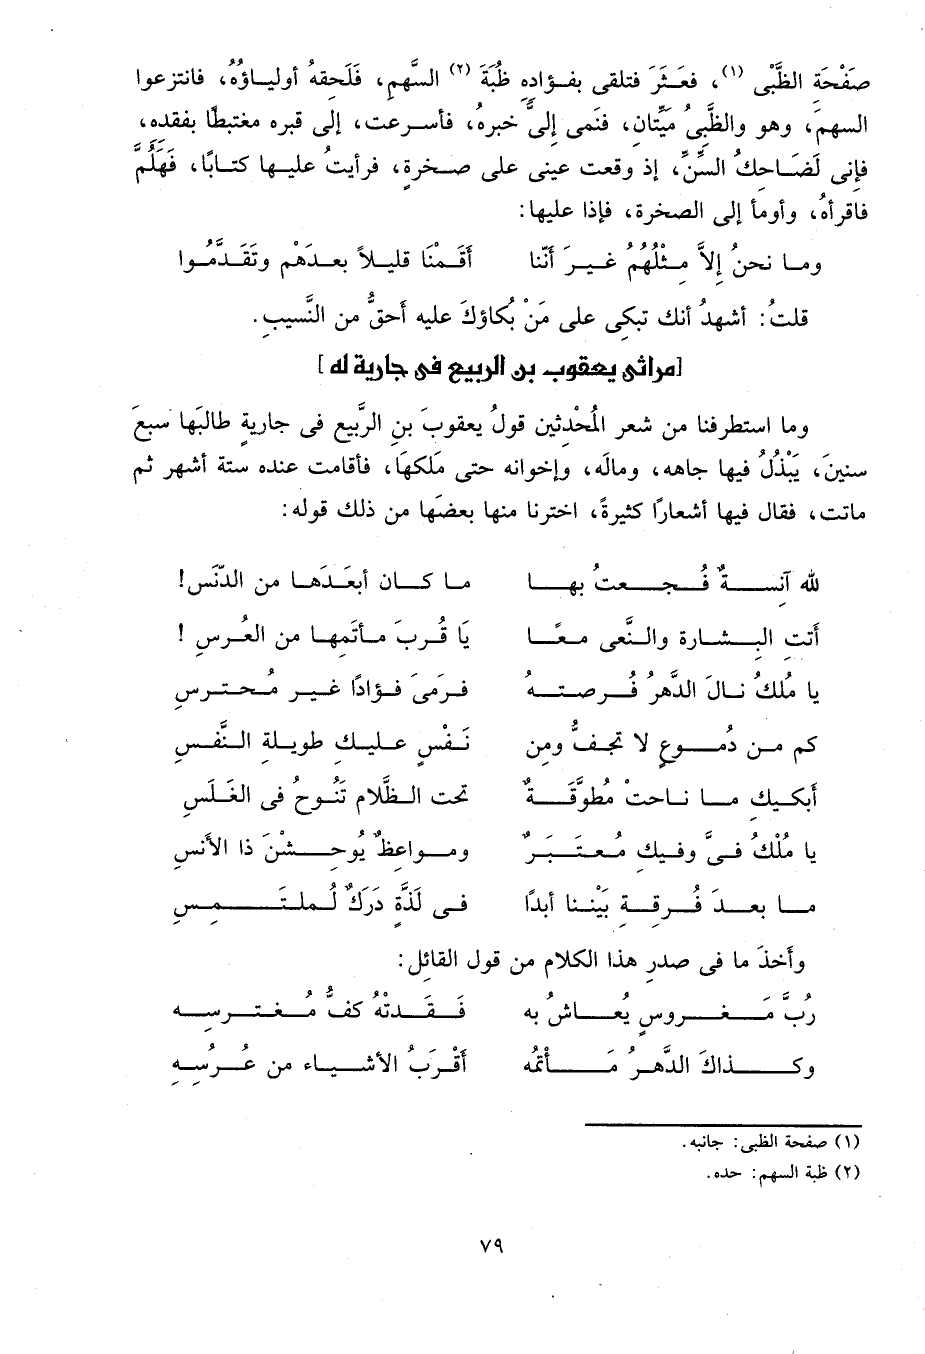 صَفْحَة الظَّبْى (١)، فعَثَرَ فتلقى بفـؤاده ظُبَةَ (٢) السَّهمِ، فَلَحقهُ أوليـاؤُهُ، فانتزعوا
السهمَ، وهو والظَّبىُ مَيِّتان، فنَمى إلىَّ خبرهُ، فأسـرعت، إلى قبره مغتبطًا بفقده،
فإنى لَضَاحكُ السنِّ، إذ وقعت عينى على صـخرةٍ، فرأيتُ عليـها كتـابًا، فَهَلُمَّ
فاقرأهُ، وأومأ إلى الصخرة، فإذا عليها:
ومـا نحنُ إلاَّ مِـثْلُهُمْ غيـرَ أنّنا أقَمْنَا قليـلاً بعـدَهُم وتَقَـدَّمُـوا
قلتُ: أشهدُ أنك تبكى على مَنْ بُكاؤكَ عليه أحَقُّ من النَّسيبِ.
[مراثى يعقوب بن الربيع فى جارية له]
وما استطرفنا من شعر المُحْدَثين قولُ يعقوبَ بنِ الرَّبيع فى جاريةٍ طالبَها سبعَ
سنينَ، يَبْذُلُ فيها جاهه، ومالَه، وإخوانه حتى مَلَكهَا، فأقامت عنده ستة أشهر ثم
ماتت، فقال فيها أشعارًا كثيرةً، اخترنا منها بعضَها من ذلك قوله:
للهِ آنسـةٌ فُـجـعـتُ بهـا مـا كـان أبعَـدَهـا من الدّنَس!
أتت البـشارة والنَّعى معًـا يَا قُـربَ مـأتمهـا من العُرسِ !
يا مُلكُ نـالَ الدَّهرُ فُـرصتـهُ فـرَمَى فـؤادًا غيـر مُـحتـرسِ
كم مـن دُمُـوعٍ لا تجفُّ ومن نَـفْسٍ عليـكِ طويلـة النَّـفَسِ
أبكـيكِ مـا نـاحتْ مُطوَّقَـةٌ تحت الـظَّلام تَنُـوحُ فى الغَلَسِ
يا مُلْكُ فـىَّ وفيـكِ مُعتَبَـرٌ ومـواعِظٌ يُوحِـشْنَ ذا الأُنسِ
مـا بعـد فُـرقـةِ بَيْنـنا أبدًا فـى لَذَّة دَرَكٌ لُملتَـمِسِ
وأخذَ ما فى صدرِ هذا الكلام من قول القائل:
رُبَّ مَـغـروسٍ يُعـاشُ به فَـقَـدتْهُ كفُّ مُـغتـرسِـه
وكـذاكَ الدَّهـرُ مَـأتمُه أقْـرَبُ الأشيـاء من عُـرُسِـهِ
(١) صفحة الظبى: جانبه.
(٢) ظبة السهم: حده.
٧٩